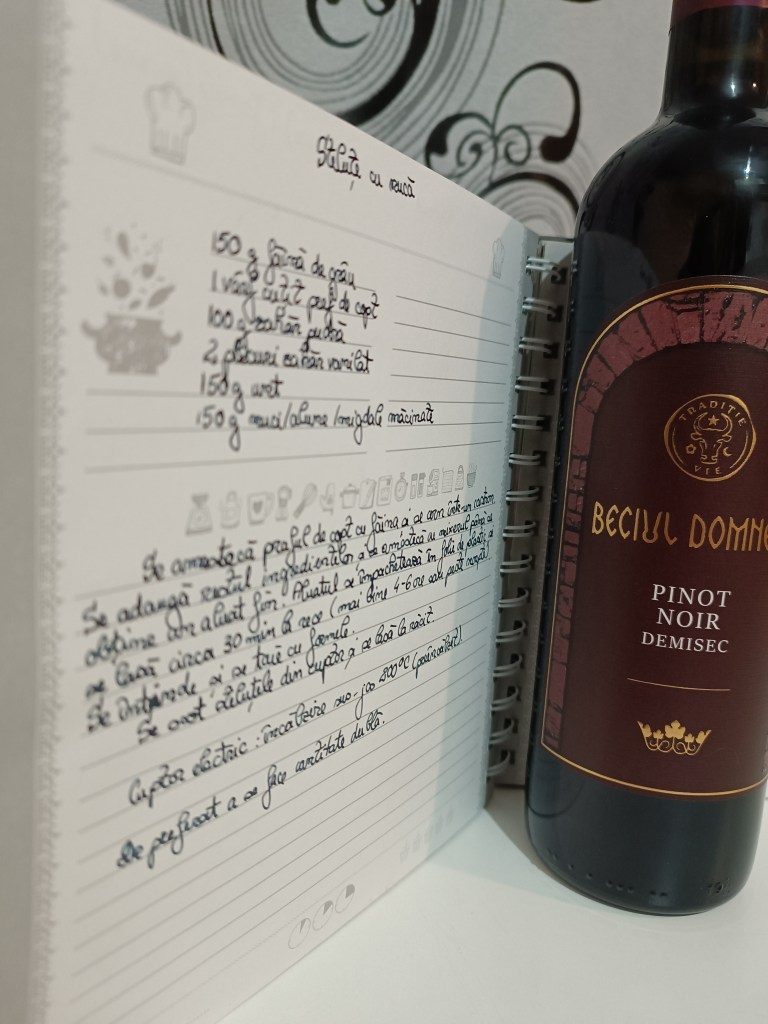 Steluțe cu nucă
150 g făină de grâu
1 vârf cuțit praf de copt
100 g zahăr pudră
2 plicuri zahăr vanilat
150 g unt
150 g nuci/alune/migdale măcinate
Se amestecă praful de copt cu făina și se cern într-un castron
Se adaugă restul ingredientelor și se amestică cu mixerul până se
obține un aluat fin. Aluatul se împachetează în folie de plastic și
se lasă circa 30 min la rece (mai bine 4-6 ore sau peste noapte)
Se întinde și se taie cu formele.
Se scot steluțele din cuptor și se lasă la răcit.
Cuptor electric: încălzire sus-jos 200°C (preîncălzit)
De preferat a se face cantitate dublă.
TRADIȚIE
VIE
BECIUL DOMNE
PINOT
NOIR
DEMISEC